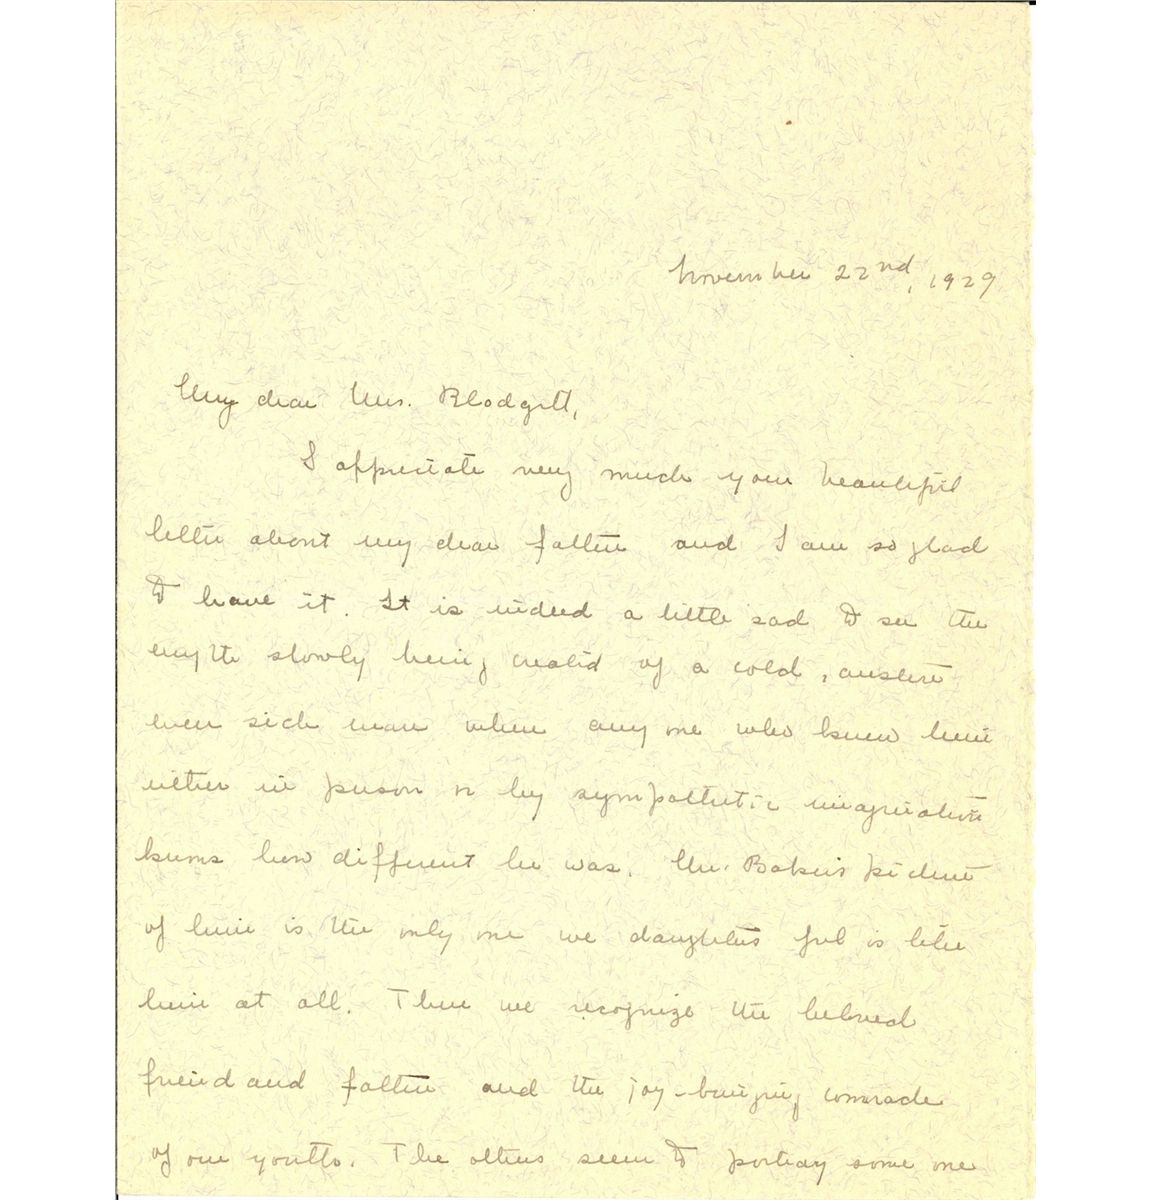 November 22nd, 1929
My dear Mrs. Blodgett,
I appreciate very much your beautiful
letter about my dear father and I am so glad
to have it. It is indeed a little sad to see the
myth slowly being created of a cold, austere
even sick man when any one who knew him
either in person or by sympathetic imagination
knows how different he was. Mr. Baker's picture
of him is the only one we daughters feel is like
him at all. There we recognize the beloved
friend and father and the joy-bringing comrade
of our youth. The others seem to portray some one